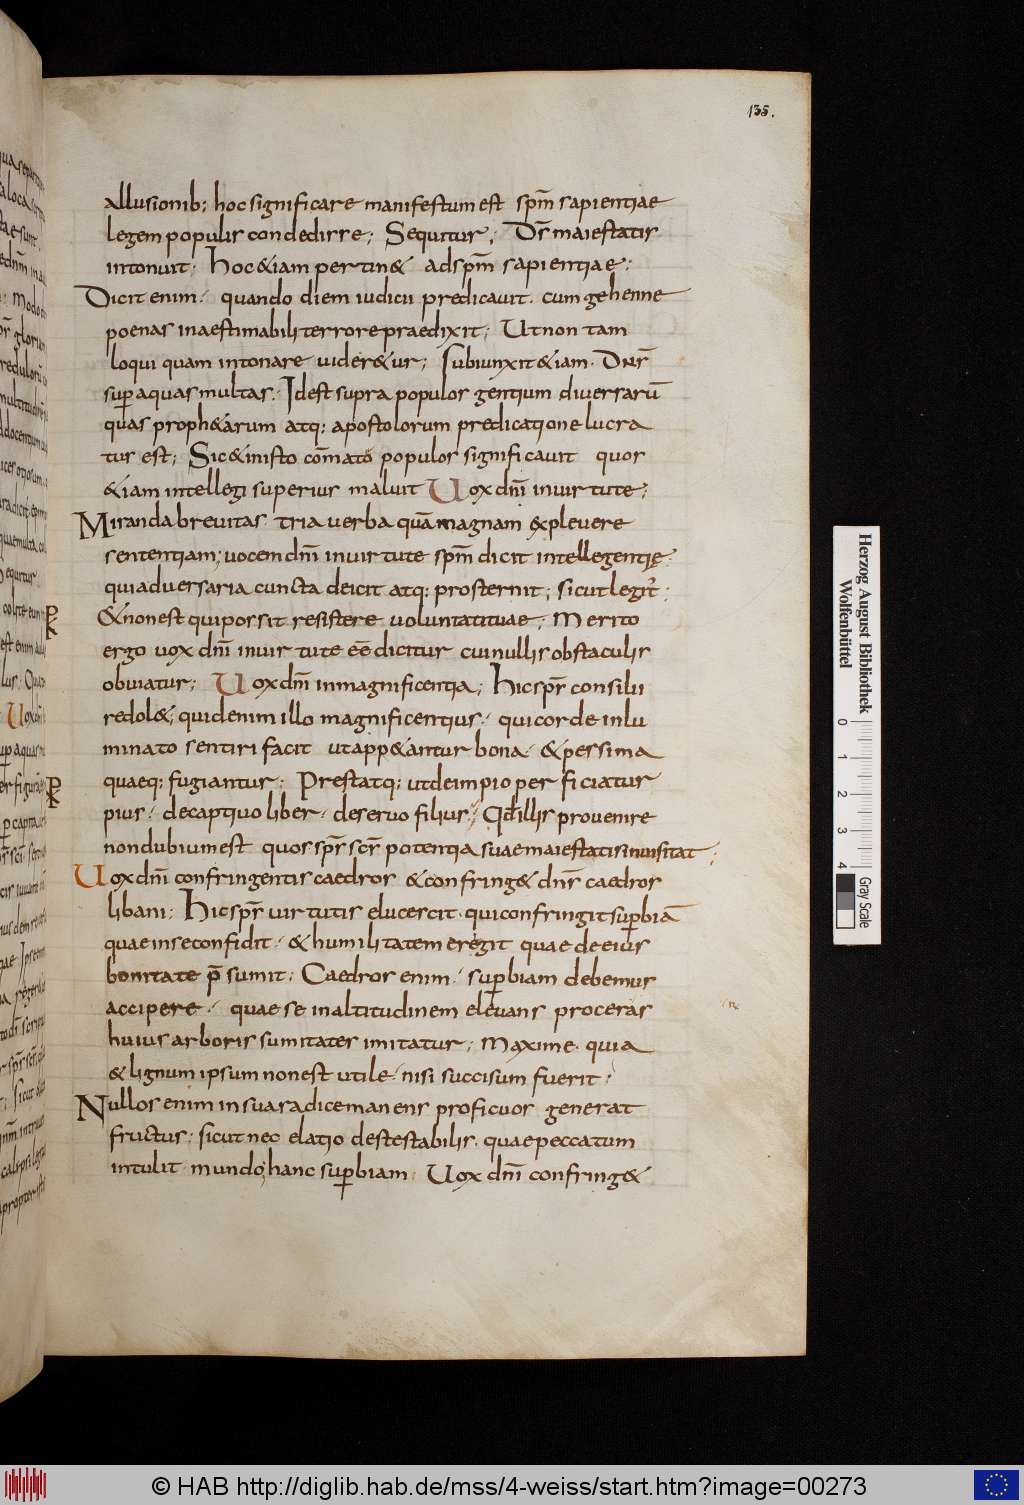 135.
allusionib; hoc significare manifestum est sp̄m sapientiae
legem populis condedisse; Sequitur; Ds̄ maiestatis
intonuit; Hoc &iam pertin& ad sp̄m sapientiae;
Dicit enim. quando diem iudicii predicauit. cum gehenne
poenas inaestimabili terrore praedixit; Ut non tam
loqui quam intonare uider&ur; Subiunxit &iam. Dn̄s
sup̄ aquas multas. Id est supra populos gentium diuersarū
quas proph&arum atq; apostolorum predicatione lucra
tur est; Sic & in isto com̄ato populos significauit quos
&iam intellegi superius maluit Uox dn̄i in uirtute;
Miranda breuitas tria uerba quā magnam expleuere
sententiam; uocem dn̄i in uirtute sp̄m dicit intellegentię.
qui aduersaria cuncta deicit atq; prosternit; sicut legit̄;
& non est qui possit resistere uoluntati tuae; Merito
ergo uox dn̄i in uirtute ēē dicitur cui nullis obstaculis
obuiatur; Uox dn̄i in magnificentia; Hic sps̄ consilii
redol&; quid enim illo magnificentius. qui corde inlu
minato sentiri facit ut app&antur bona. & pessima
quaeq; fugiantur; Prestatq; ut de impio perficiatur
pius. de captiuo liber. de seruo filius; Qd̄ illis prouenire
non dubium est quos sps̄ scs̄ potentia suae maiestatis inuisitat;
Uox dn̄i confringentis caedros & confring& dn̄s caedros
libani; Hic sps̄ uirtutis elucescit. qui confringit sup̄biā
quae in se confidit. & humilitatem eregit quae de eius
bonitate p̄sumit; Caedros enim. sup̄biam debemus
accipere. quae se in altitudinem eleuans proceras
huius arboris sumitates imitatur; Maxime. quia
& lignum ipsum non est utile. nisi succisum fuerit;
Nullos enim in sua radice manens proficuos generat
fructus; sicut nec elatio destestabilis. quae peccatum
intulit mundo; hanc sup̄biam. Uox dn̄i confring&
Herzog August Bibliothek
Wolfenbüttel
0 1 2 3 4
Gray Scale
© HAB http://diglib.hab.de/mss/4-weiss/start.htm?image=00273